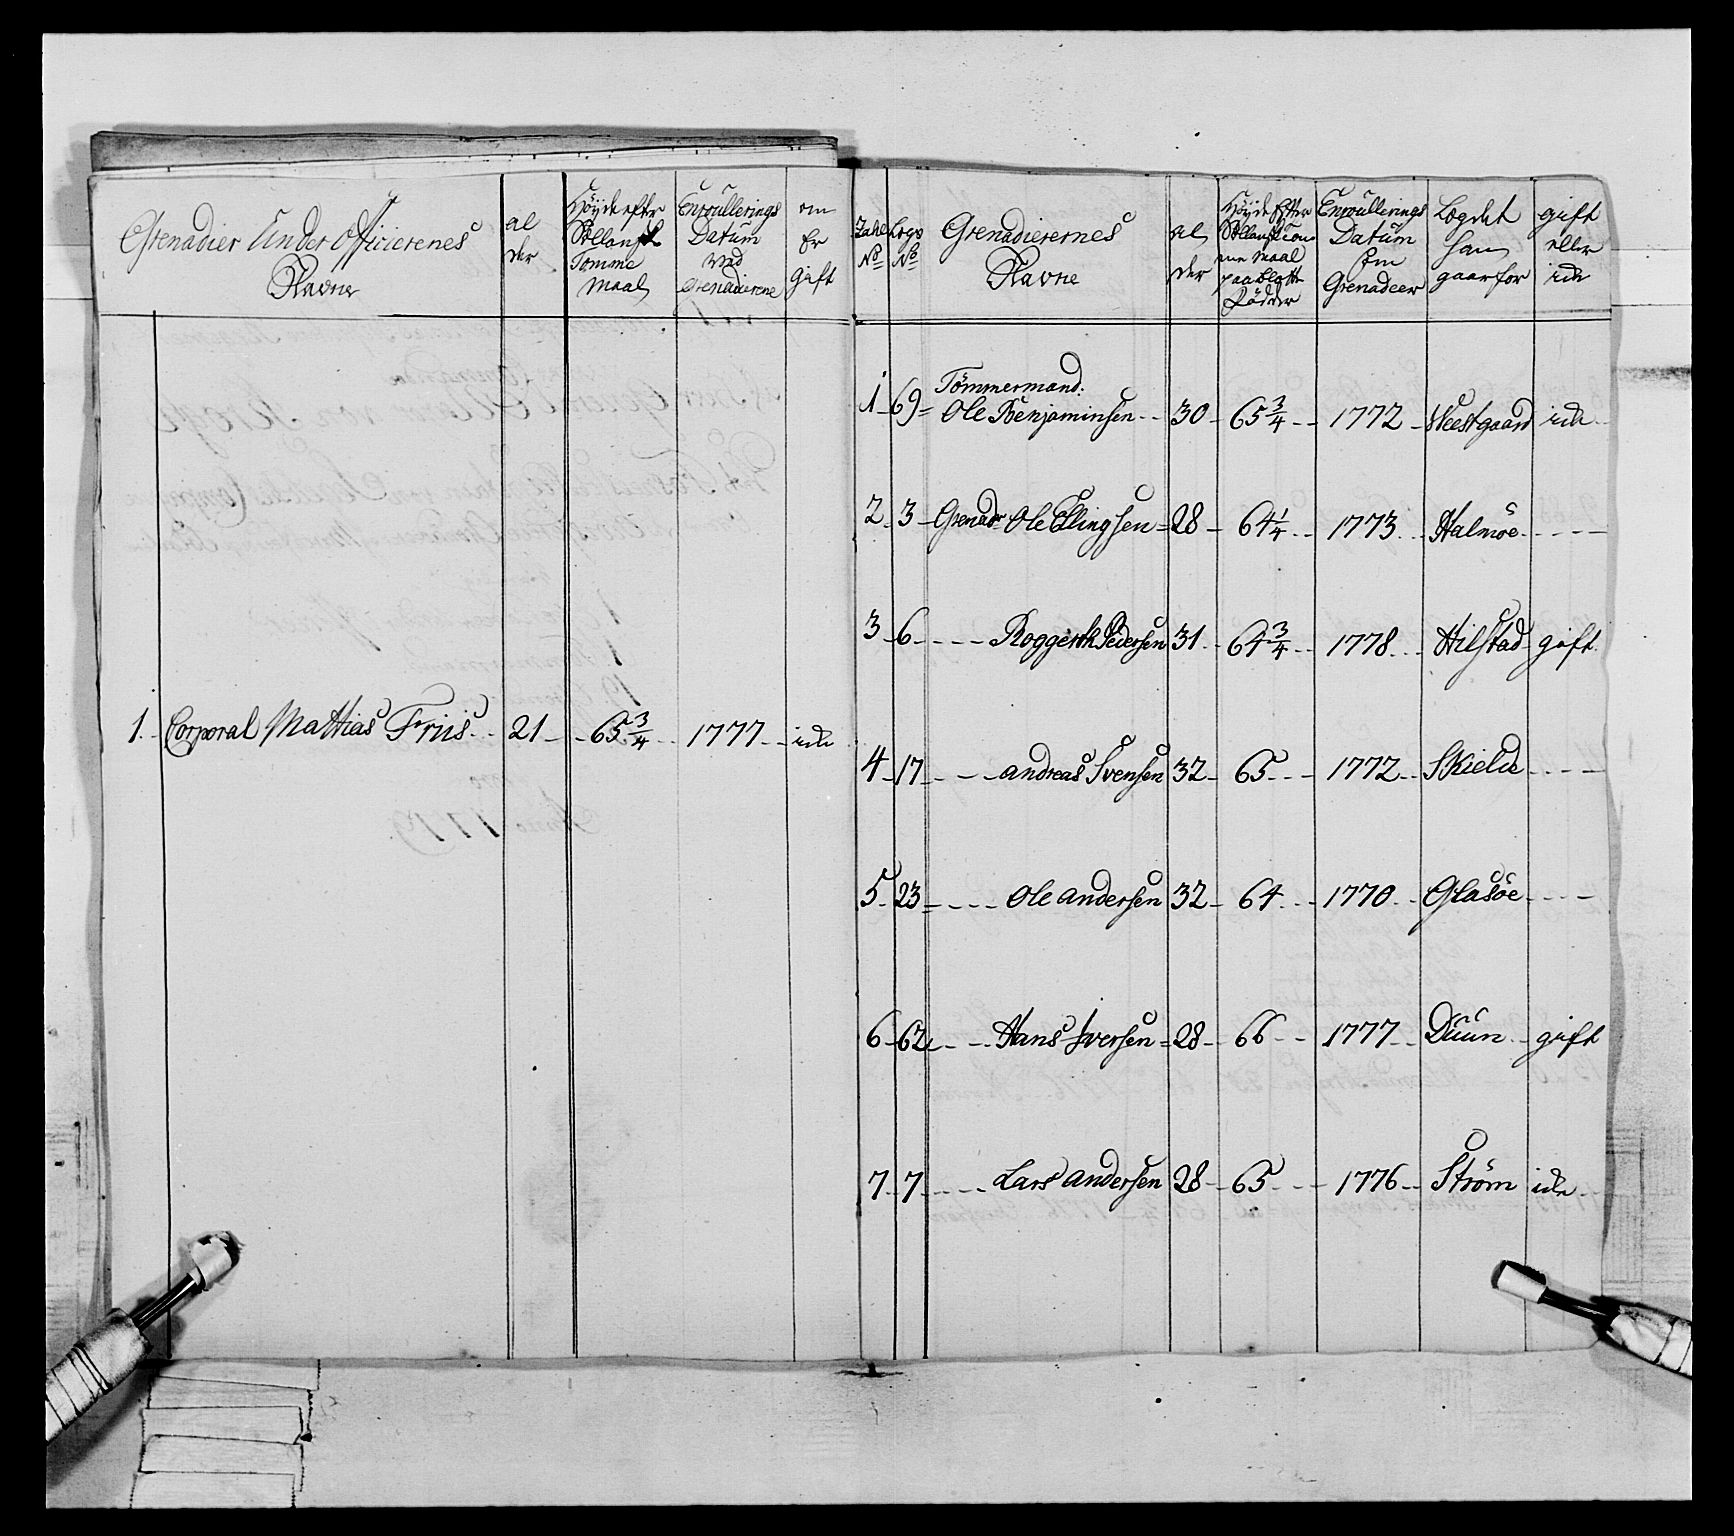 Grenadier Under Officierenes Navne
al der
Höyde efter Sællansk Tomme Maal
Enroullerings Datum ved Grenadierene
om Er gift
1. Corporal Mathias Friis 21 65 3/4 1777 ide
Zahl No
Logs No
Grenadierernes Navne
al der
Höyde Efter Maal paa blotte födder
Enroullerings Datum som Grenadeer
Logdet han gaar for
gift eller ide
Tömmermand:
1 69 Ole Benjaminsen 30 65 3/4 1772 Weestgaard ide
2 3 Grenadr Ole Ellingsen 28 64 1/4 1773 Halmöe
3 6 Roggerth Pedersen 31 64 3/4 1778 Hilstad gift
4 17 andreas Svensen 32 65 1772 Skielde
5 23 Ole andersen 32 64 1770 Glasöe
6 62 Hans Iversen 28 66 1777 Duun gift
7 7 Lars andersen 28 65 1776 Ström ide